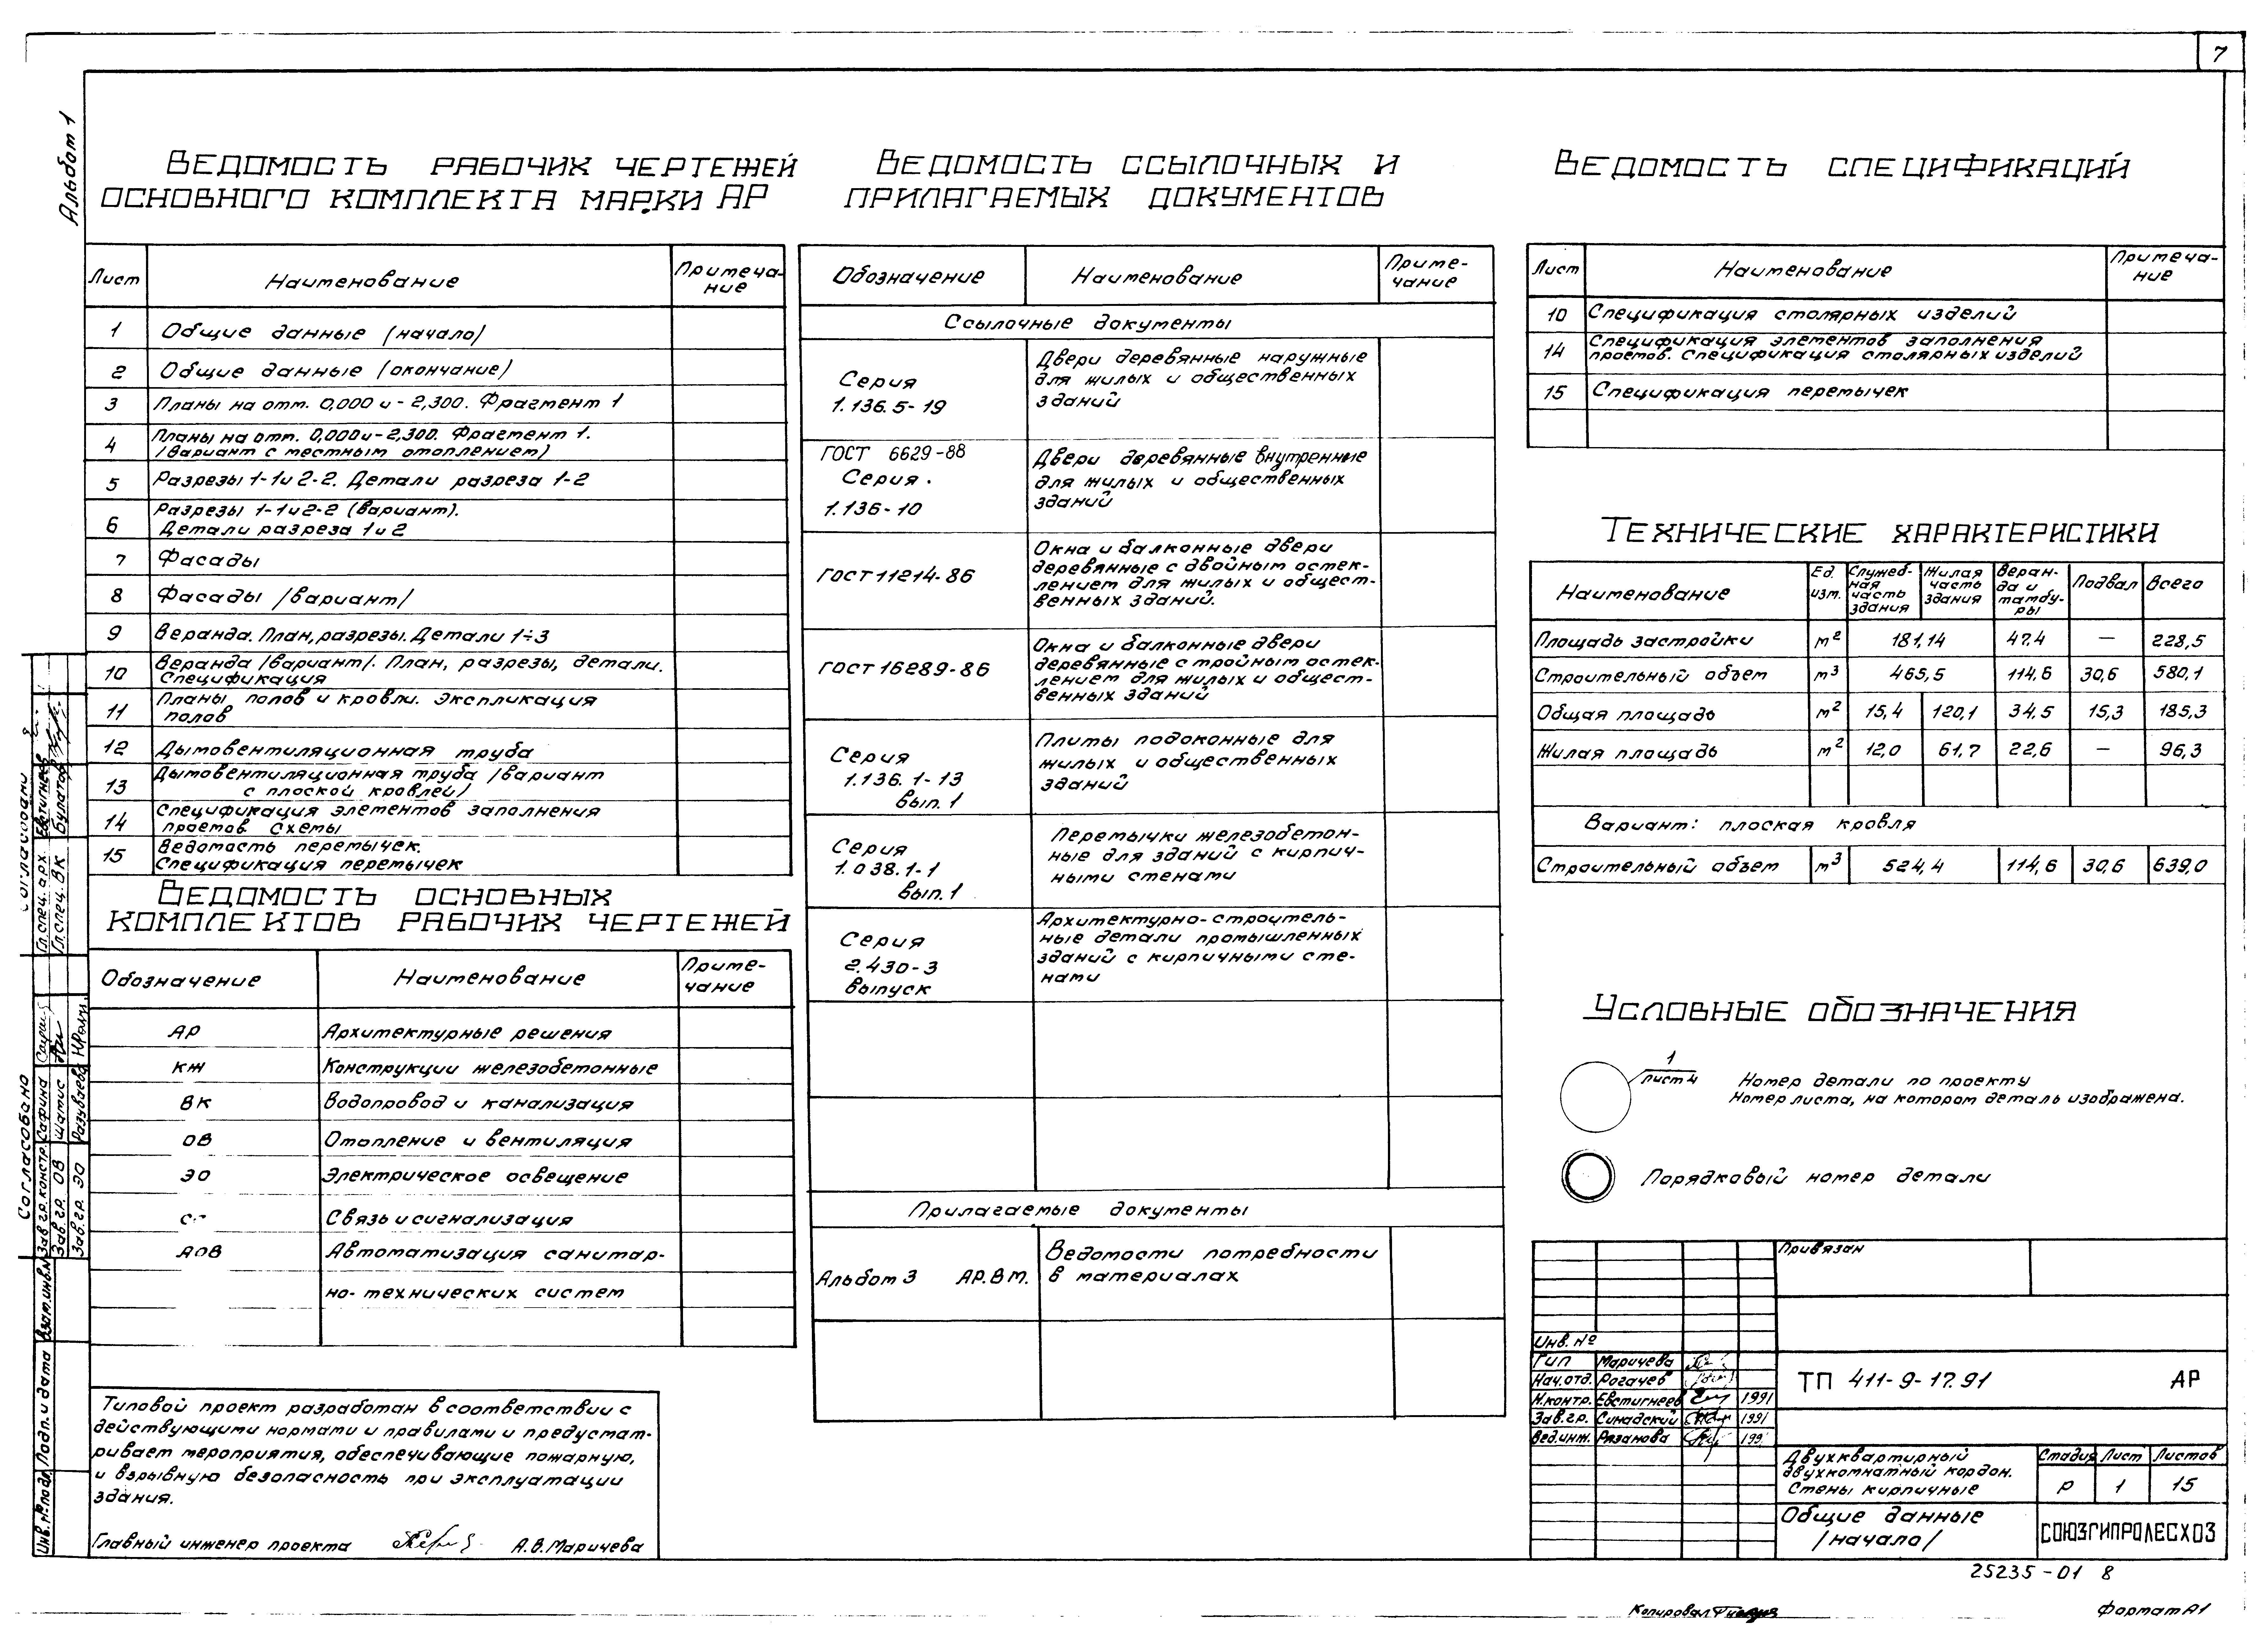 7
Альбом 1
Ведомость рабочих чертежей
основного комплекта марки АР
Лист Наименование Примеча-
ние
1 Общие данные (начало)
2 Общие данные (окончание)
3 Планы на отм. 0,000 и -2,300. Фрагмент 1
4 Планы на отм. 0,000 и -2,300. Фрагмент 1.
/вариант с местным отоплением)
5 Разрезы 1-1 и 2-2. Детали разреза 1-2
6 Разрезы 1-1 и 2-2 (вариант).
Детали разреза 1 и 2
7 Фасады
8 Фасады /вариант/
9 Веранда. План, разрезы. Детали 1÷3
10 Веранда /вариант/. План, разрезы, детали.
Спецификация
11 Планы полов и кровли. Экспликация
полов
12 Дымовентиляционная труба
13 Дымовентиляционная труба /вариант
с плоской кровлей/
14 Спецификация элементов заполнения
проемов. Схемы
15 Ведомость перемычек.
Спецификация перемычек
Ведомость основных
комплектов рабочих чертежей
Обозначение Наименование Приме-
чание
АР Архитектурные решения
КЖ Конструкции железобетонные
ВК Водопровод и канализация
ОВ Отопление и вентиляция
ЭО Электрическое освещение
Связь и сигнализация
АОВ Автоматизация санитар-
но-технических систем
Типовой проект разработан в соответствии с
действующими нормами и правилами и предусмат-
ривает мероприятия, обеспечивающие пожарную,
и взрывную безопасность при эксплуатации
здания.
Главный инженер проекта А.В. Маричева
Ведомость ссылочных и
прилагаемых документов
Обозначение Наименование Приме-
чание
Ссылочные документы
Серия
1.136.5-19
Двери деревянные наружные
для жилых и общественных
зданий
ГОСТ 6629-88
Серия.
1.136-10
Двери деревянные внутренние
для жилых и общественных
зданий
ГОСТ 11214-86
Окна и балконные двери
деревянные с двойным остек-
лением для жилых и общест-
венных зданий.
ГОСТ 16289-86
Окна и балконные двери
деревянные с тройным остек-
лением для жилых и общест-
венных зданий
Серия
1.136.1-13
вып. 1
Плиты подоконные для
жилых и общественных
зданий
Серия
1.038.1-1
вып. 1
Перемычки железобетон-
ные для зданий с кирпич-
ными стенами
Серия
2.430-3
выпуск
Архитектурно-строитель-
ные детали промышленных
зданий с кирпичными сте-
нами
Прилагаемые документы
Альбом 3 АР.ВМ.
Ведомости потребности
в материалах
Ведомость спецификаций
Лист Наименование Примеча-
ние
10 Спецификация столярных изделий
14 Спецификация элементов заполнения
проемов. Спецификация столярных изделий
15 Спецификация перемычек
Технические характеристики
Наименование Ед. изм. Служеб-
ная часть здания Жилая часть здания Веран-
да и тамбу-
ры Подвал Всего
Площадь застройки м² 181,14 47.4 — 228,5
Строительный объем м³ 465,5 114,6 30,6 580,1
Общая площадь м² 15,4 120,1 34.5 15,3 185,3
Жилая площадь м² 12,0 61,7 22,6 — 96,3
Вариант: плоская кровля
Строительный объем м³ 524,4 114,6 30,6 639,0
Условные обозначения
1
лист 4
Номер детали по проекту
Номер листа, на котором деталь изображена.
Порядковый номер детали
Привязан
Инв. №
ГИП Маричева
Нач.отд. Рогачев
Н.контр. Евстигнеев 1991
Зав.гр. Синадский 1991
Вед.инж. Рязанова 199
ТП 411-9-17.91 АР
Двухквартирный
двухкомнатный кордон.
Стены кирпичные
Стадия Лист Листов
Р 1 15
Общие данные
/начало/
СОЮЗГИПРОЛЕСХОЗ
25235-01 8
Копировал
Формат А1
Согласовано
Гл. спец. арх. Евстигнеев
Гл. спец. ВК Булатов
Согласовано
Зав гр. констр. Сафина
Зав. гр. ОВ Шатис
Зав. гр. ЭО Разуваева
Взам. инв. №
Подп. и дата
Инв. № подл.